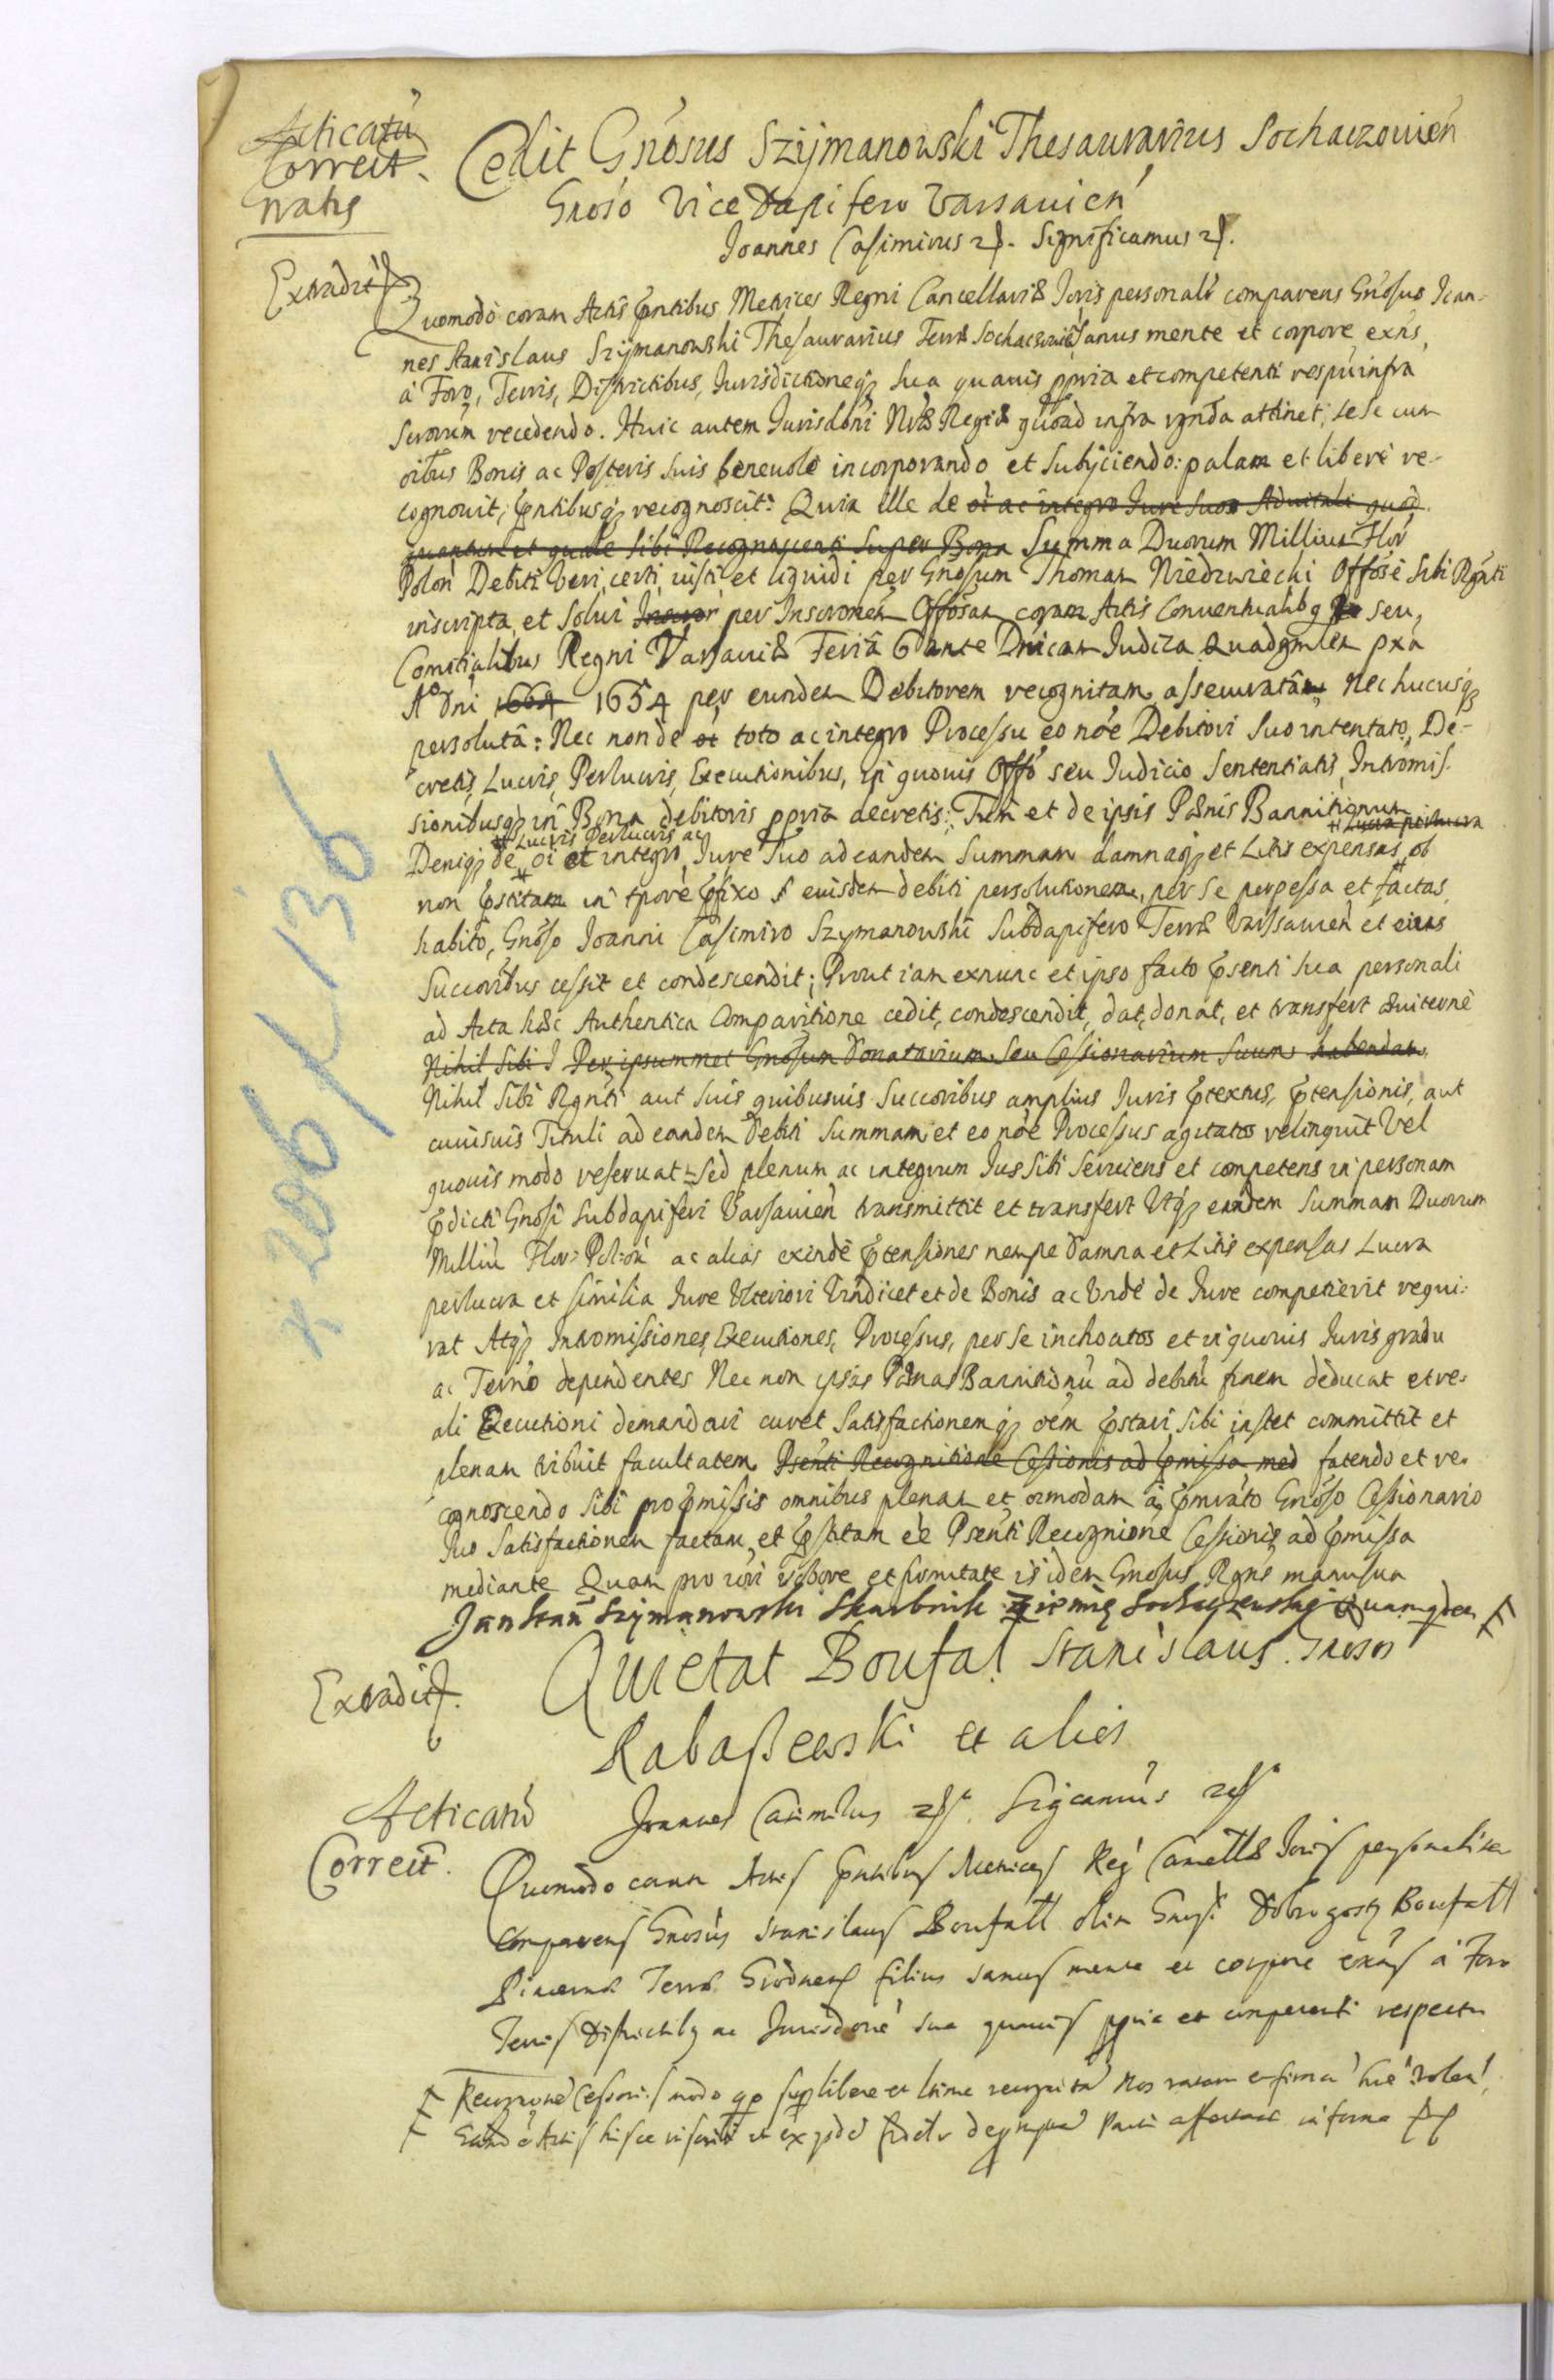 Acticatū
Correct.
natis
Cedit Gn̄osus Szÿmanowski Thesaurarius Sochaczouien̄
Gnoso Vice Dapifero Varsauien̄
Joannes Casimirus Significamus
Extradit
Quomodo coram Actis p̄ntibus Metrices Regni Cancellariæ Ioris personalr̄ comparens Gn̄osus Ioan-
nes Stanislaus Szÿmanowski Thesaurarius Terræ Sanus mente et corpore exn̄s,
à Foro, Terris, Districtibus, Iurisdictioneq; sua quauis ppria et competenti respūinfra
Scrorum recedendo. Huic autem Iurisdōni Nr̄æ Regiæ quoad infra attinet, sese cum
oībus Bonis ac Posteris suis beneuole incorporando et Subÿciendo: palam et libere re-
cognouit, p̄ntibusq; recognoscit: Quia ille de oī ac integro Iure suo Aduitali quod
quantum et quale sibi Recognoscenti super Bona Summa Duorum Millium Flor̄
Polon̄ Debiti Veri, certi, iusti et liquidi per Gn̄osum Thomam Niedzwiecki Offōse sibi Rgn̄ti
inscripta, et Solui per Inscrōnem Offōsam coram Actis Conuentualibq seu,
Comitialibus Regni Varsauiæ Feria 6 ante Dnīcam Iudica Quadgmlem pxa
Aº Dnī 1664 1654 per eundem Debitorem recognitam, assecuratam, Nec hucusq;
persolutâ: Nec non de oī toto ac integro Processu eo nōe Debitori suo intentato, De-
cretis, Lucris, Perlucris, Executionibus, in quouis Offō seu Iudicio Sententiatis, Intromis-
sionibusq; in Bona debitoris ppria decretis: Tum et de ipsis Pænis Bannitionum
Lucris Perlucris ac
Lucra perlucra
Deniq; de oī et integro Iure Suo ad eandem Summam damnaq; et Litis expensas ob
non p̄stitam in tpore p̄fixo eiusdem debiti persolutionem, per se perpessa et factas
habito, Gnōso Ioanni Casimiro Szymanowski Subdapifero Terræ Varssauien̄ et eius
Succoribus cessit et condescendit; Prout iam exnunc et ipso facto p̄senti sua personali
ad Acta hæc Authentica Comparitione cedit, condescendit, dat, donat, et transfert æuiterne
Nihil Sibi Per ipsummet Gnōsum Donatarium seu Cessionarium Suum habendam
Nihil Sibi Rgn̄ti aut suis quibusuis Succoribus amplius Iuris p̄textus, p̄tensionis, aut
cuiusuis Tituli ad eandem Debiti Summam et eo nōe Processus agitatos relinquit Vel
quouis modo reseruat Sed plenum ac integrum Ius Sibi Seruiens et competens in personam
p̄dicti Gnosi Subdapiferi Varsauien̄ transmittit et transfert Vtq; eandem Summam Duorum
Milliū Flor: Polon̄ ac alias exinde p̄tensiones nempe Damna et Litis expensas Lucra
perlucra et similia Iure Vlteriori Vindicet et de Bonis ac Vnde de Iure competierit requi-
rat Atq; Intromissiones, Executiones, Processus, per se inchoatos et in quouis Iuris gradu
ac Terno dependentes Nec non ipsas Pænas Bannitionū ad debitū finem deducat et re-
ali Executioni demandari curet Satisfactionemq; oēm p̄stari sibi instet committit et
plenam tribuit facultatem. Psenti Recognitione Cessionis ad p̄missa med fatendo et re-
cognoscendo sibi pro p̄missis omnibus plenam et oīmodam à p̄mrāto Gnōso Cessionario
Suo Satisfactionem factam et p̄stitam eē Psenti Recognione Cessionis ad p̄missa
mediante Quam pro robore et firmitate is idem Gnosus Rgn̄s manu sua
Jan Stan̄ Szÿmanowski Skarbnik Ziemię Sochaczewskię Quamqdem
Extradit
Quietat Boufał Stanislaus Gnosos
Rabaszewski et alios
Acticatū Joannes Casimirus Sigcamus
Correct.
Quomodo coram Actis p̄ntibus Metrices Reg̀ Cancellæ Ioris personaliter
comparens Gnosus Stanislaus Boufałł olim Gnosi Dobrogosty Boufałł
Pincernæ Terræ Grodnen̄ filius sanus mente et corpore exn̄s à Foro
Terris Districtibq ac Iurisdōne sua quauis ppria et competenti respectu
Recognōne Cessionis modo libere et recognita Nos ratam et firmā
Actis hisce inscribi et
* 206/136